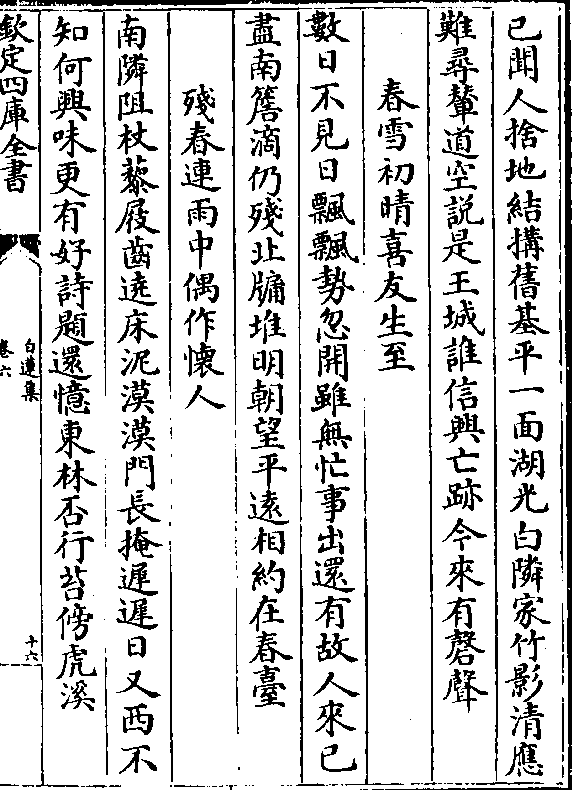 已聞人捨地結搆舊基平一面湖光白隣家竹影清應
難尋輦道空説是王城誰信興亡跡今來有磬聲
春雪初晴喜友生至
數日不見日飄飄勢忽開雖無忙事出還有故人來已
盡南簷滴仍殘北牖堆明朝望平逺相約在春臺
殘春連雨中偶作懷人
南隣阻杖藜屐齒遶床泥漠漠門長掩遲遲日又西不
知何興味更有好詩題還憶東林否行苔傍虎溪
欽定四庫全書
白蓮集
卷六
十六